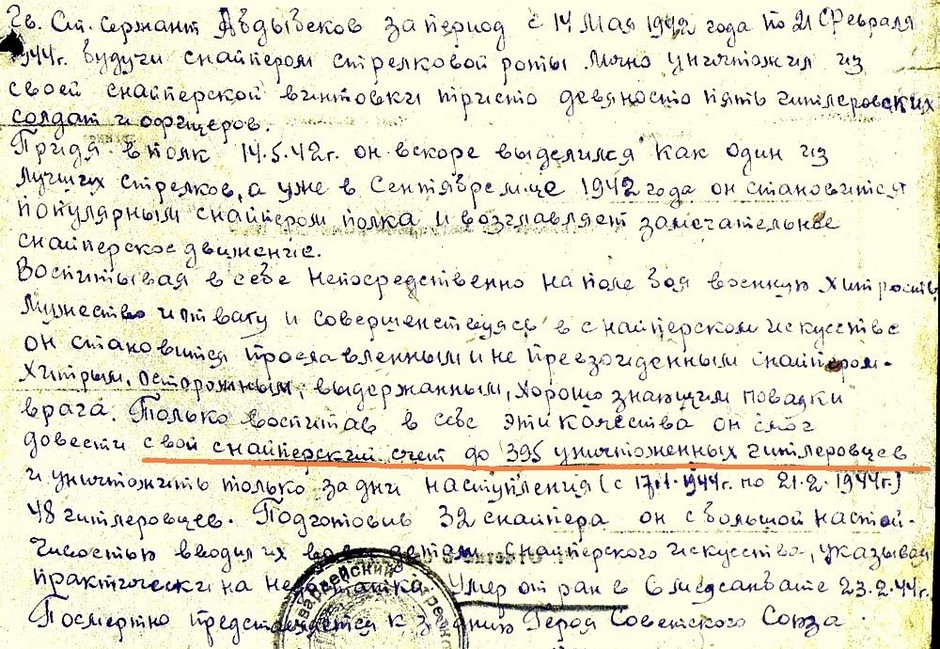 Гв. Ст. Сержант Авдыбеков за период с 14 Мая 1942 года по 21 Февраля
1944г. будучи снайпером стрелковой роты лично уничтожил из
своей снайперской винтовки тристо девяносто пять гитлеровских
солдат и офицеров.
Придя в полк 14.5.42г. он вскоре выделился как один из
лучших стрелков, а уже в Сентябре м-це 1942 года он становится
популярным снайпером полка и возглавляет замечательное
снайперское движение.
Воспитывая в себе непосредственно на поле боя военную хитрость
мужество и отвагу и совершенствуясь в снайперском искусстве
он становится прославленным и не превзойденным снайпером-
хитрым, осторожным, выдержанным, хорошо знающим повадки
врага. Только воспитав в себе эти качества он смог
довести свой снайперский счет до 395 уничтоженных гитлеровцев
и уничтожить только за дни наступления (с 17.1.1944г. по 21.2.1944г.)
48 гитлеровцев. Подготовив 32 снайпера он с большой настой-
чивостью вводил их во снайперского искусства, указывая
практически на Умер от ран в 6 медсанбате 23.2.44г.
Посмертно представляется к званию Героя Советского Союза.
гвардейский стрелко